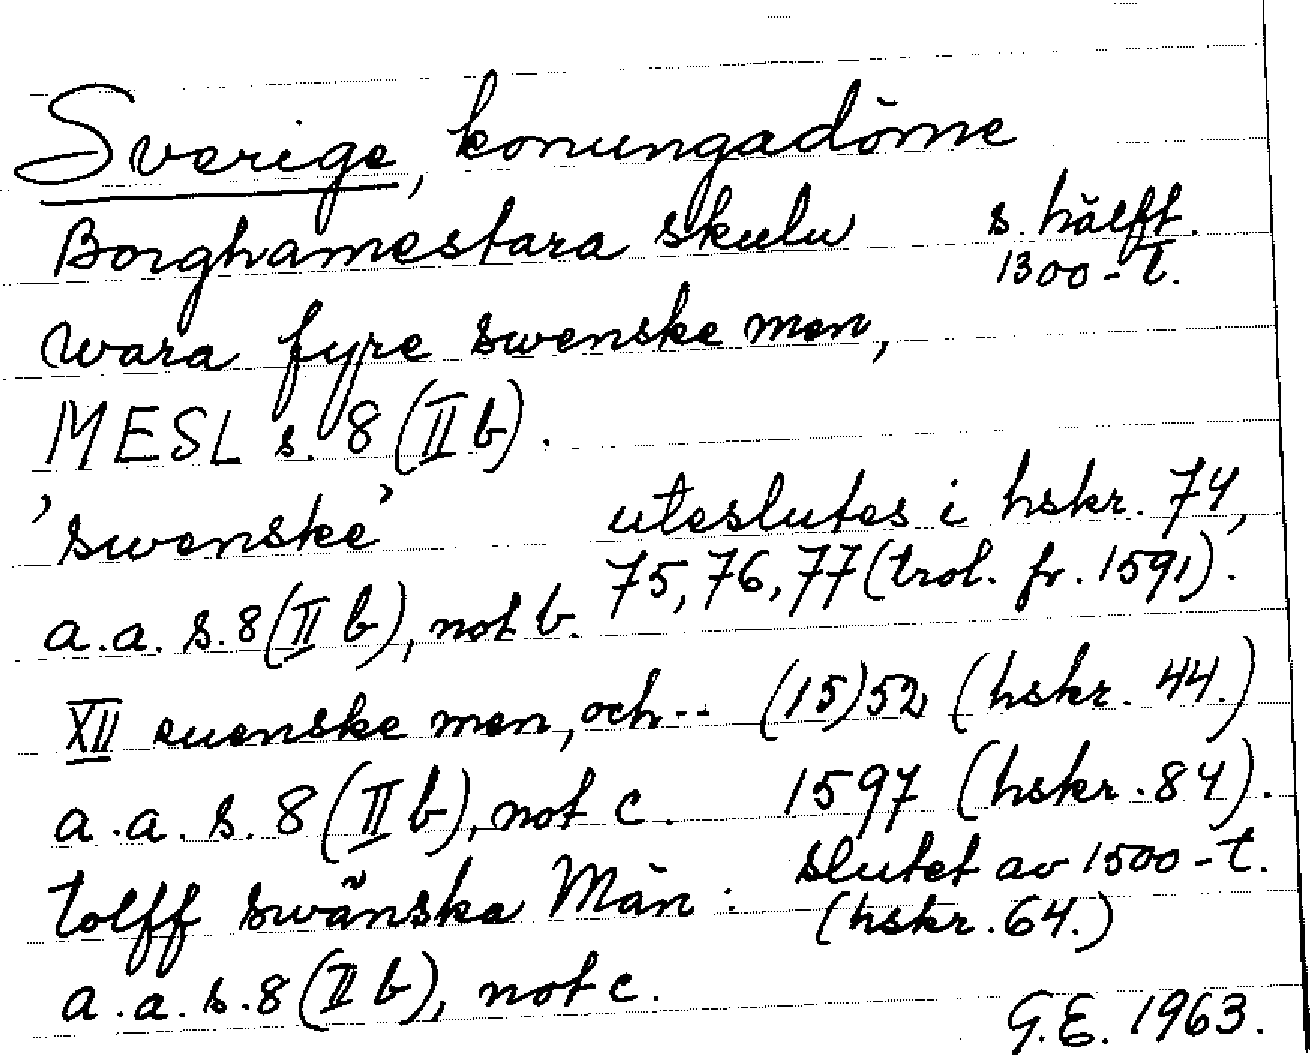 Sverige, konungadöme
Borghamestara skulu s. hälft.
1300-t.
wara fyre swenske men,
MESL s. 8 (II b).
'swenske' uteslutes i hskr. 74,
75, 76, 77 (trol. fr. 1591).
a.a. s. 8 (II b), not b.
XII suenske men, och-- (15)52 (hskr. 44.)
a.a. s. 8 (II b), not c. 1597 (hskr. 84).
tolff swänska Män: slutet av 1500-t.
(hskr. 64.)
a.a. s. 8 (II b), not c.
G.E. 1963.